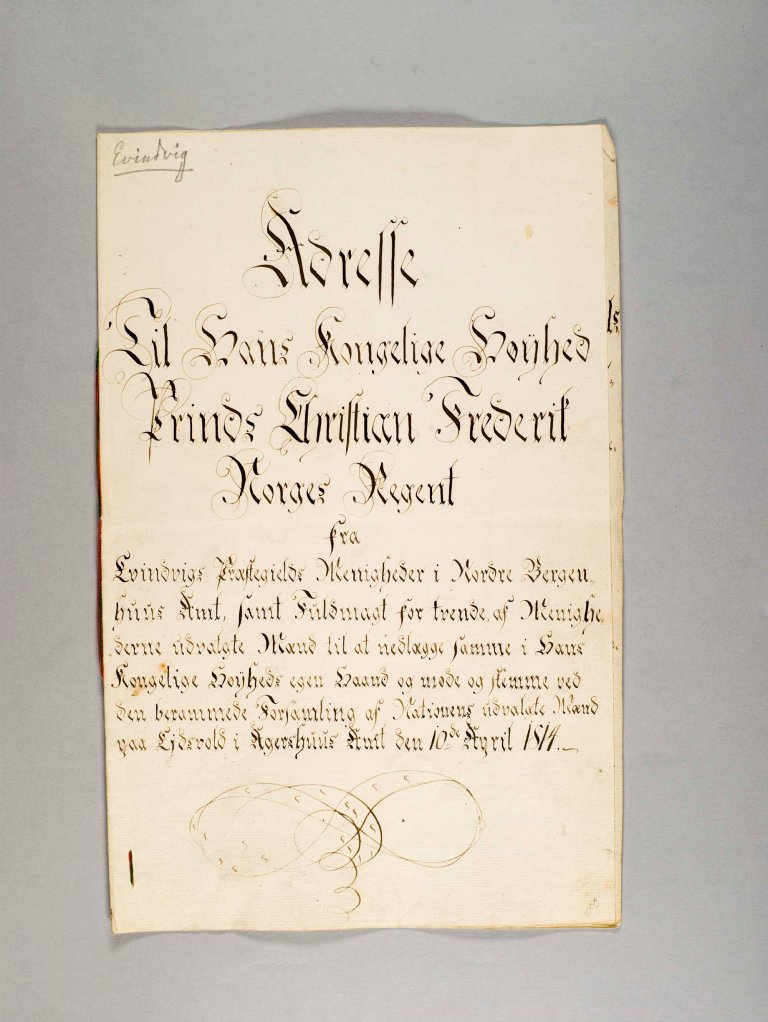 Evindvig
Adresse
Til Hans Kongelige Høÿhed
Prinds Christian Frederik
Norges Regent
fra
Evindvigs Præstegields Menigheder i Nordre Bergen„
huus Amt, samt Fuldmagt for trende, af Menighe„
„derne udvalgte Mænd til at nedlægge samme i Hans
Kongelige Høÿheds egen Haand og møde og stemme ved
den berammede Forsamling af Nationens udvalgte Mænd
paa Ejdsvold i Agershuus Amt den 10de April 1814.